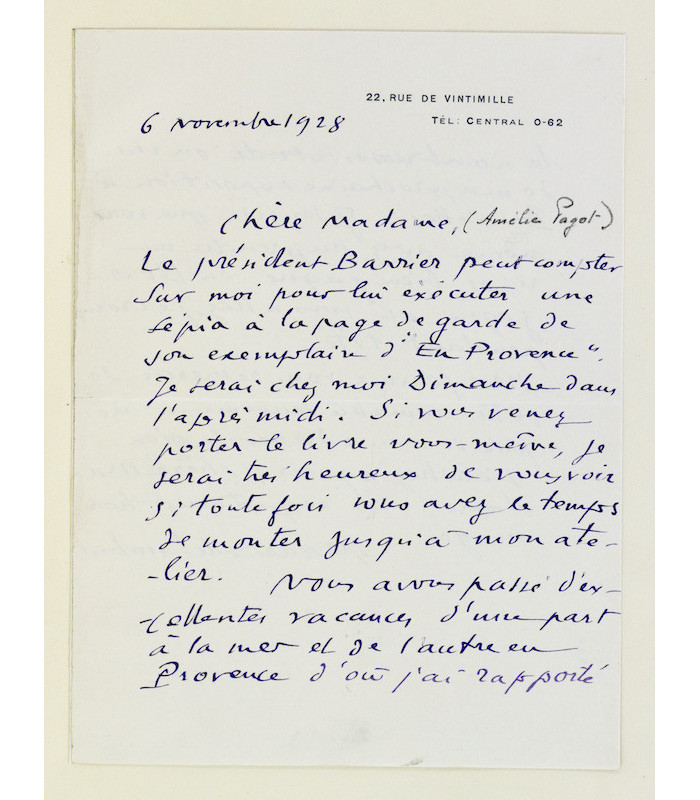 22, RUE DE VINTIMILLE
TÉL: CENTRAL 0-62
6 novembre 1928
Chère Madame, (Amélie Pagot)
Le président Barrier peut compter
sur moi pour lui exécuter une
sépia à la page de garde de
son exemplaire d'"En Provence".
Je serai chez moi Dimanche dans
l'après midi. Si vous venez
porter le livre vous-même, je
serai très heureux de vous voir
si toutefois vous avez le temps
de monter jusqu'à mon ate-
-lier. Nous avons passé d'ex-
-cellentes vacances d'une part
à la mer et de l'autre en
Provence d'où j'ai rapporté